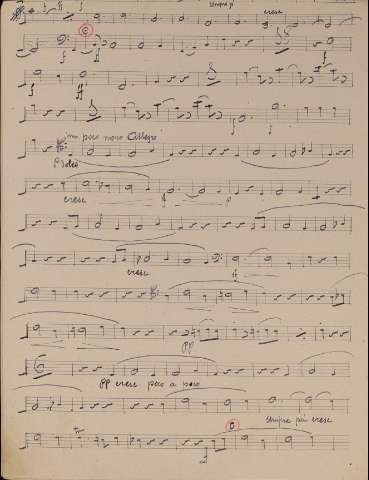 sempre p cresc
C
un poco meno Allegro
p dolce
cresc p
cresc
pp
6
pp cresc poco a poco
sempre più cresc
D